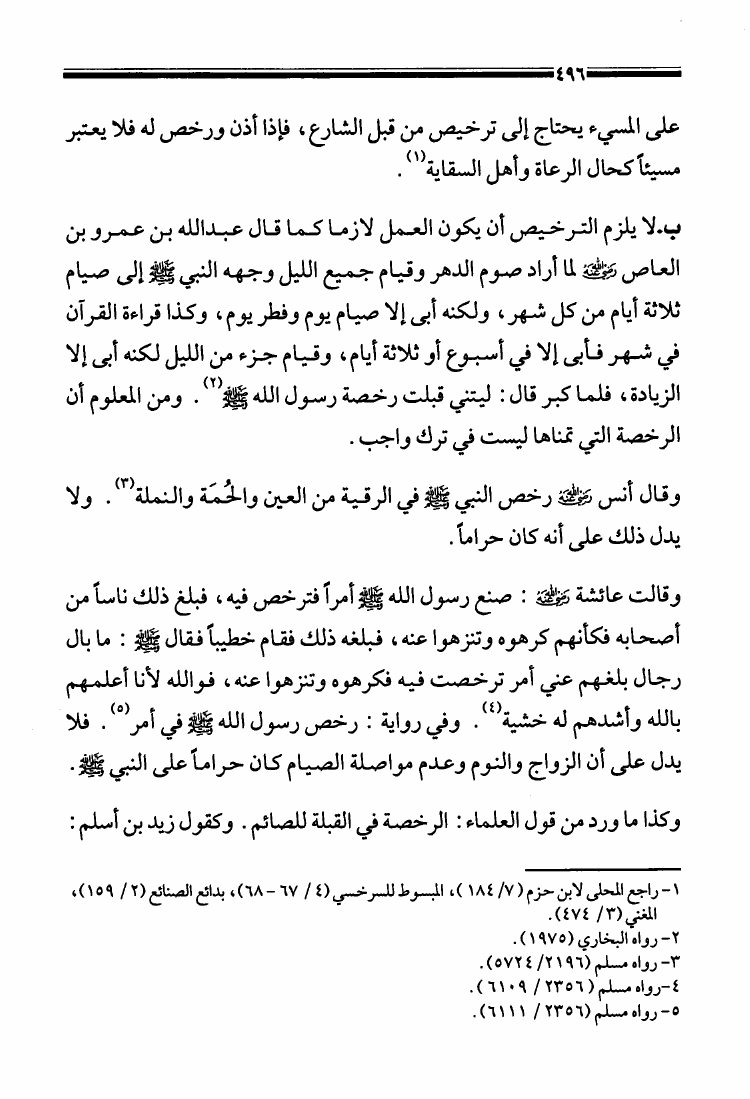 ٤٩٦
على المسيء يحتاج إلى ترخيص من قبل الشارع، فإذا أذن ورخص له فلا يعتبر
مسيئاً كحال الرعاة وأهل السقاية(١).
ب.لا يلزم الترخيص أن يكون العمل لازما كما قال عبدالله بن عمرو بن
العاص رضي الله عنه لما أراد صوم الدهر وقيام جميع الليل وجهه النبي ﷺ إلى صيام
ثلاثة أيام من كل شهر، ولكنه أبى إلا صيام يوم وفطر يوم، وكذا قراءة القرآن
في شهر فأبى إلا في أسبوع أو ثلاثة أيام، وقيام جزء من الليل لكنه أبى إلا
الزيادة، فلما كبر قال: ليتني قبلت رخصة رسول الله ﷺ(٢). ومن المعلوم أن
الرخصة التي تمناها ليست في ترك واجب.
وقال أنس رضي الله عنه رخص النبي ﷺ في الرقية من العين والحُمَة والنملة(٣). ولا
يدل ذلك على أنه كان حراماً.
وقالت عائشة رضي الله عنها : صنع رسول الله ﷺ أمراً فترخص فيه، فبلغ ذلك ناساً من
أصحابه فكأنهم كرهوه وتنزهوا عنه، فبلغه ذلك فقام خطيباً فقال ﷺ : ما بال
رجال بلغهم عني أمر ترخصت فيه فكرهوه وتنزهوا عنه، فوالله لأنا أعلمهم
بالله وأشدهم له خشية(٤). وفي رواية : رخص رسول الله ﷺ في أمر(٥). فلا
يدل على أن الزواج والنوم وعدم مواصلة الصيام كان حراماً على النبي ﷺ.
وكذا ما ورد من قول العلماء : الرخصة في القبلة للصائم. وكقول زيد بن أسلم :
١- راجع المحلى لابن حزم (٧/ ١٨٤ )، المبسوط للسرخسي (٤/ ٦٧ -٦٨)، بدائع الصنائع (٢/ ١٥٩)،
المغني (٣/ ٤٧٤).
٢- رواه البخاري (١٩٧٥).
٣- رواه مسلم (٢١٩٦/ ٥٧٢٤).
٤-رواه مسلم ( ٢٣٥٦ / ٦١٠٩ ).
٥- رواه مسلم (٢٣٥٦ / ٦١١١).